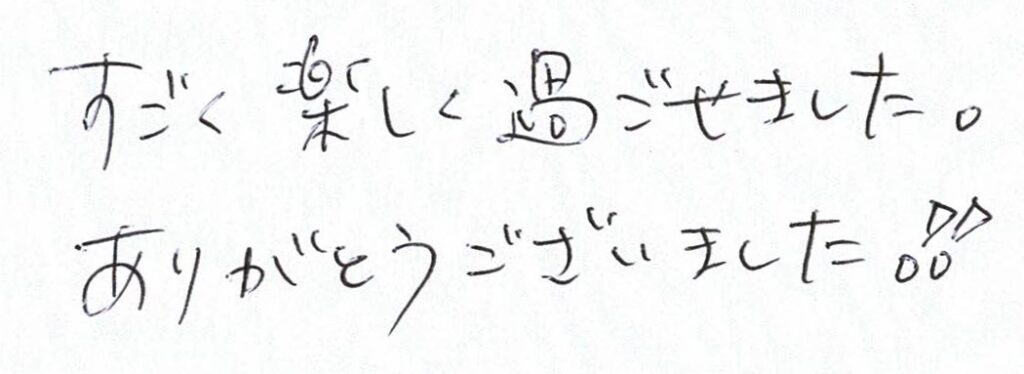 すごく楽しく過ごせました。
ありがとうございました!!